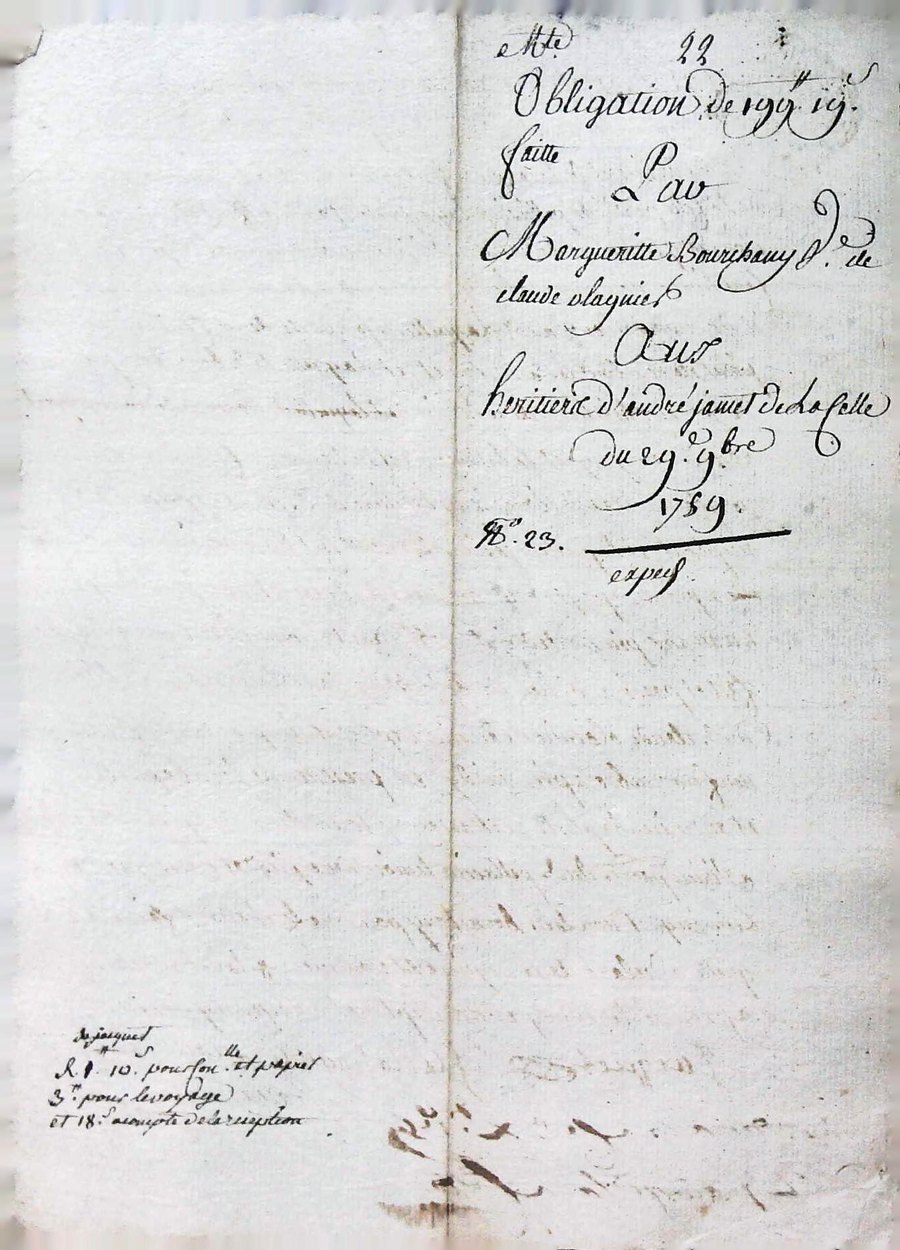 22
Obligation de 199# 19s.
faitte
Par
Margueritte Bourchany Ve. de
claude
Aux
heritiers d'andré jamet de La Celle
du 29e. 9bre
1789.
No. 23.
exped
de jacquet
R. 1# 10s. pour con.lle et papier
3# pour le voyage
et 18s. acompte de la reception